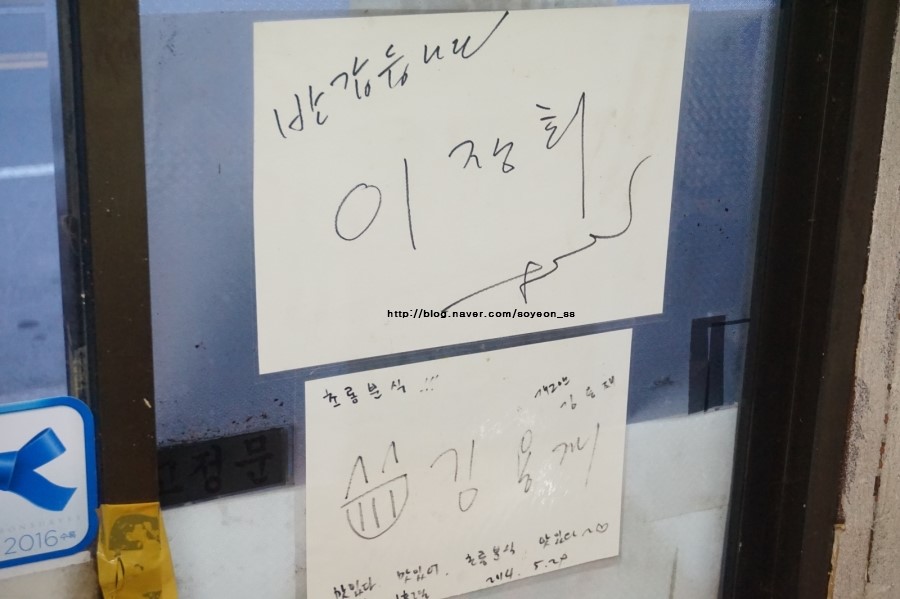 반갑습니다
이장희
http://blog.naver.com/soyeon_ss
초롱분식 !!!
개그맨
김용재
맛있다 맛있어. 초롱분식 맛있다~♡
2014. 5. 29
고정문
2016 수록